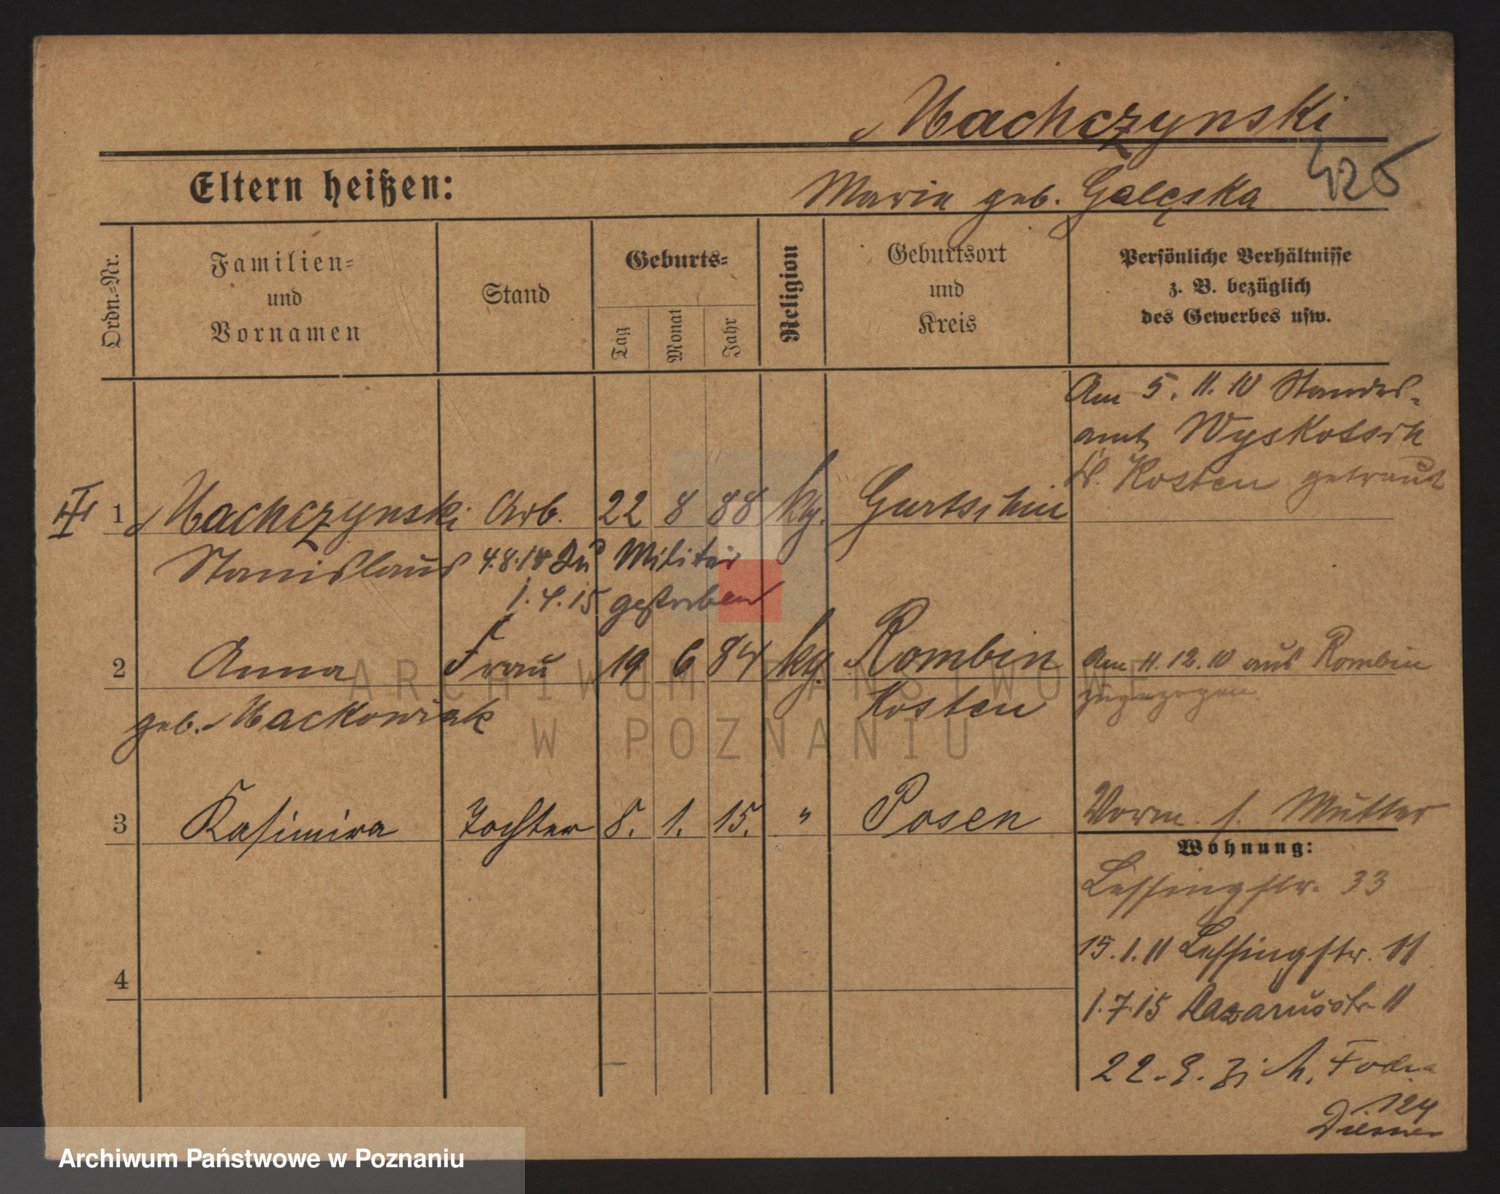 Machczynski
Eltern heißen:
Maria geb. Galęska
425
Ordn.-Nr.
Familien-
und
Vornamen
Stand
Geburts-
Tag
Monat
Jahr
Religion
Geburtsort
und
Kreis
Persönliche Verhältnisse
z. B. bezüglich
des Gewerbes usw.
Am 5. 11. 10 Standes-
amt Wyskotsch
Kr. Kosten getraut
III 1 Machczynski Arb. 22 8 88 kg. Gurtschin
Stanislaus 4.8.14 zu Militär
1.4.15 gestorben
2 Anna Frau 19 6 84 kg. Rombin
Kosten
geb. Mackowiak
Am 11.12.10 aus Rombin
zugezogen
3 Kasimira Tochter 8. 1. 15. " Posen
Vorm. s. Mutter
Wohnung:
Lessingstr. 33
15.1.11 Lessingstr. 11
1.7.15 Lazarusstr 11
22.9.
124
4
ARCHIWUM PAŃSTWOWE
W POZNANIU
Archiwum Państwowe w Poznaniu